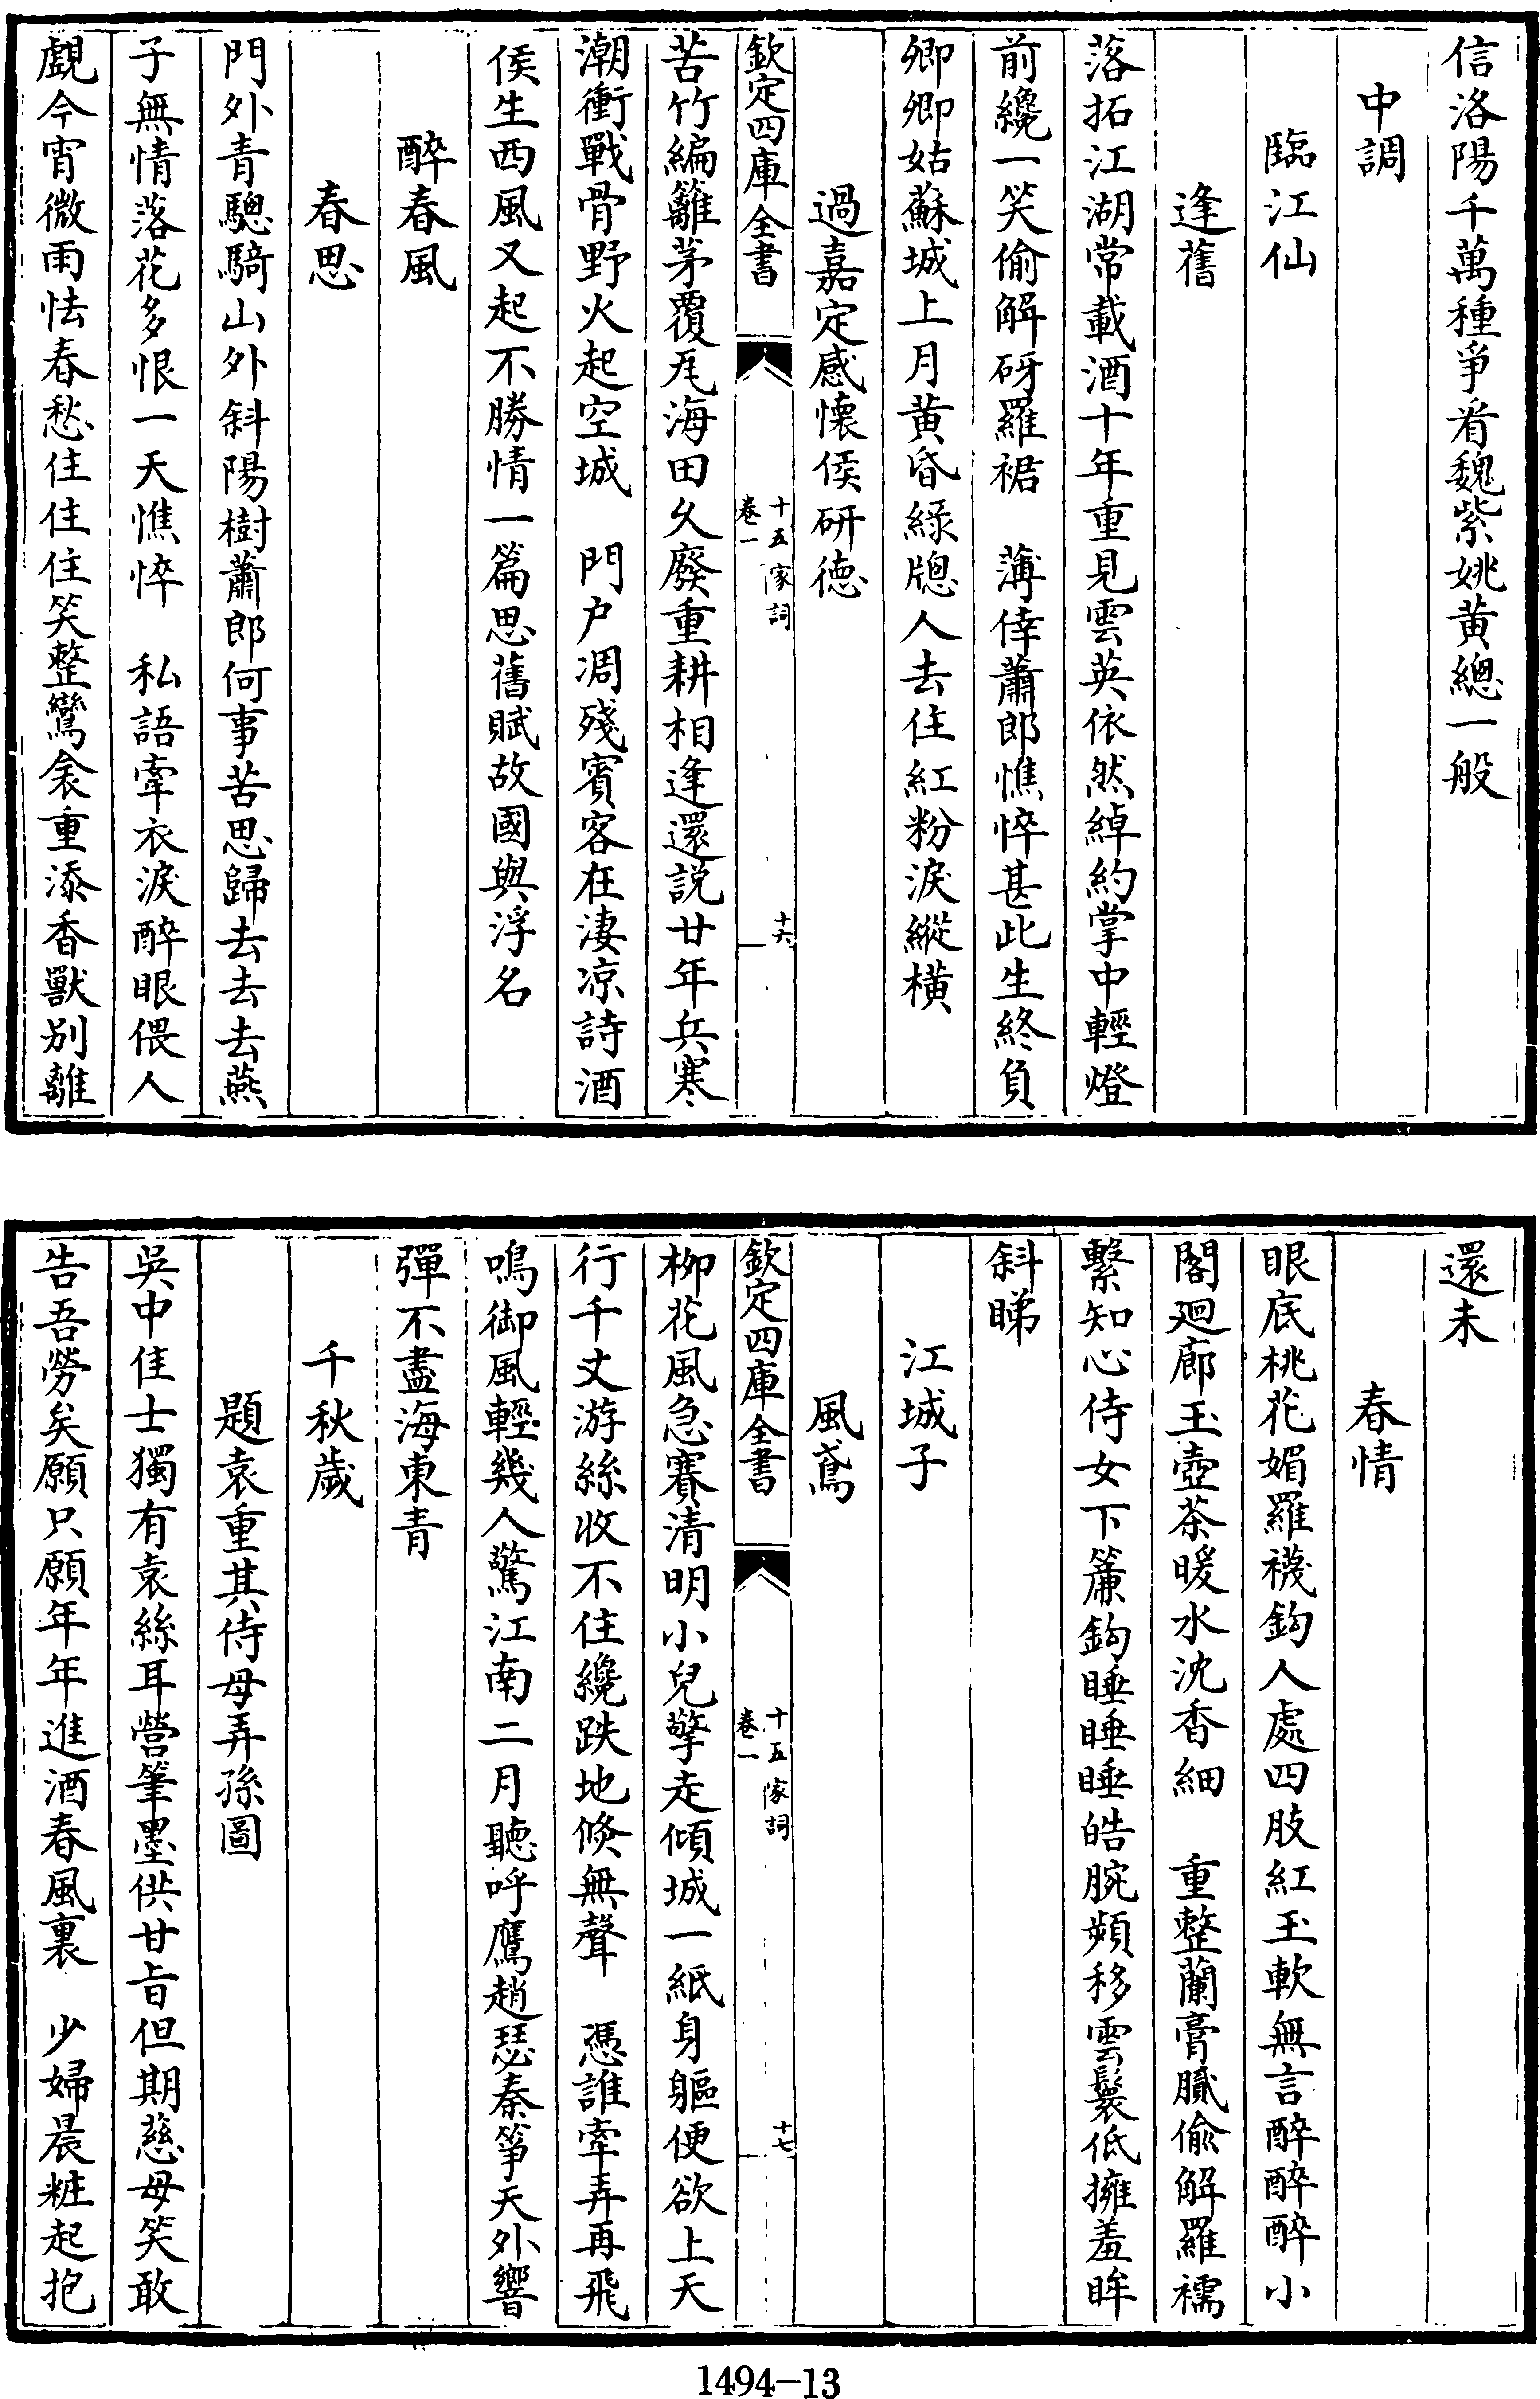 信洛陽千萬種爭看魏紫姚黄總一般
中調
臨江仙
逢舊
落拓江湖常載酒十年重見雲英依然綽約掌中輕燈
前纔一笑偷解砑羅裙　薄倖蕭郎憔悴甚此生終負
卿卿姑蘇城上月黄昏緑牎人去住紅粉淚縱橫
過嘉定感懷侯研徳
欽定四庫全書
十五家詞
卷一
十六
苦竹編籬茅覆瓦海田久廢重耕相逢還説廿年兵寒
潮衝戰骨野火起空城　門户凋殘賓客在淒凉詩酒
侯生西風又起不勝情一篇思舊賦故國與浮名
醉春風
春思
門外青驄騎山外斜陽樹蕭郎何事苦思歸去去去燕
子無情落花多恨一天憔悴　私語牽衣淚醉眼偎人
覷今宵微雨怯春愁住住住笑整鸞衾重添香獸别離
還未
春情
眼底桃花媚羅襪鈎人處四肢紅玉軟無言醉醉醉小
閣廻廊玉壺茶暖水沈香細　重整蘭膏膩偷解羅襦
繫知心侍女下簾鈎睡睡睡皓腕頻移雲鬟低擁羞眸
斜睇
江城子
風鳶
欽定四庫全書
十五家詞
卷一
十七
柳花風急賽清明小兒擎走傾城一紙身軀便欲上天
行千丈游絲收不住纔跌地倐無聲　憑誰牽弄再飛
鳴御風輕幾人驚江南二月聽呼鷹趙瑟秦箏天外響
彈不盡海東青
千秋歲
題袁重其侍母弄孫圖
吳中佳士獨有袁絲耳營筆墨供甘旨但期慈母笑敢
告吾勞矣願只願年年進酒春風裏　少婦晨粧起抱
1494-13